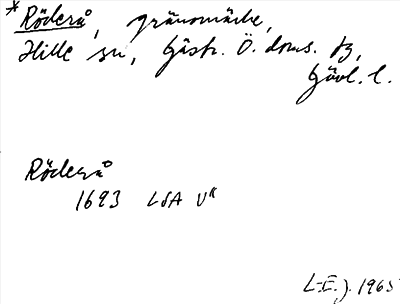 *Röderå, gränsmärke,
Hille sn, Gästr. Ö. doms. tg,
Gävl. l.
Röderå
1693 LSA VR
L-E. J. 1965